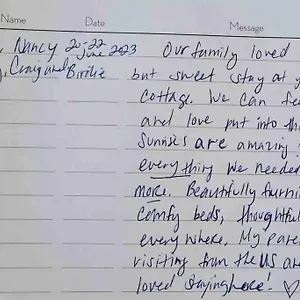 Name Date Message
Nancy 20-22 June 2023 Our family loved
Craig and Birdie but sweet stay at y
cottage. We can fee
and love put into th
Sunrises are amazing
everything we needed
more. Beautifully furni
comfy beds, thoughtful
everywhere. My pare
visiting from the US an
loved staying here! ♡